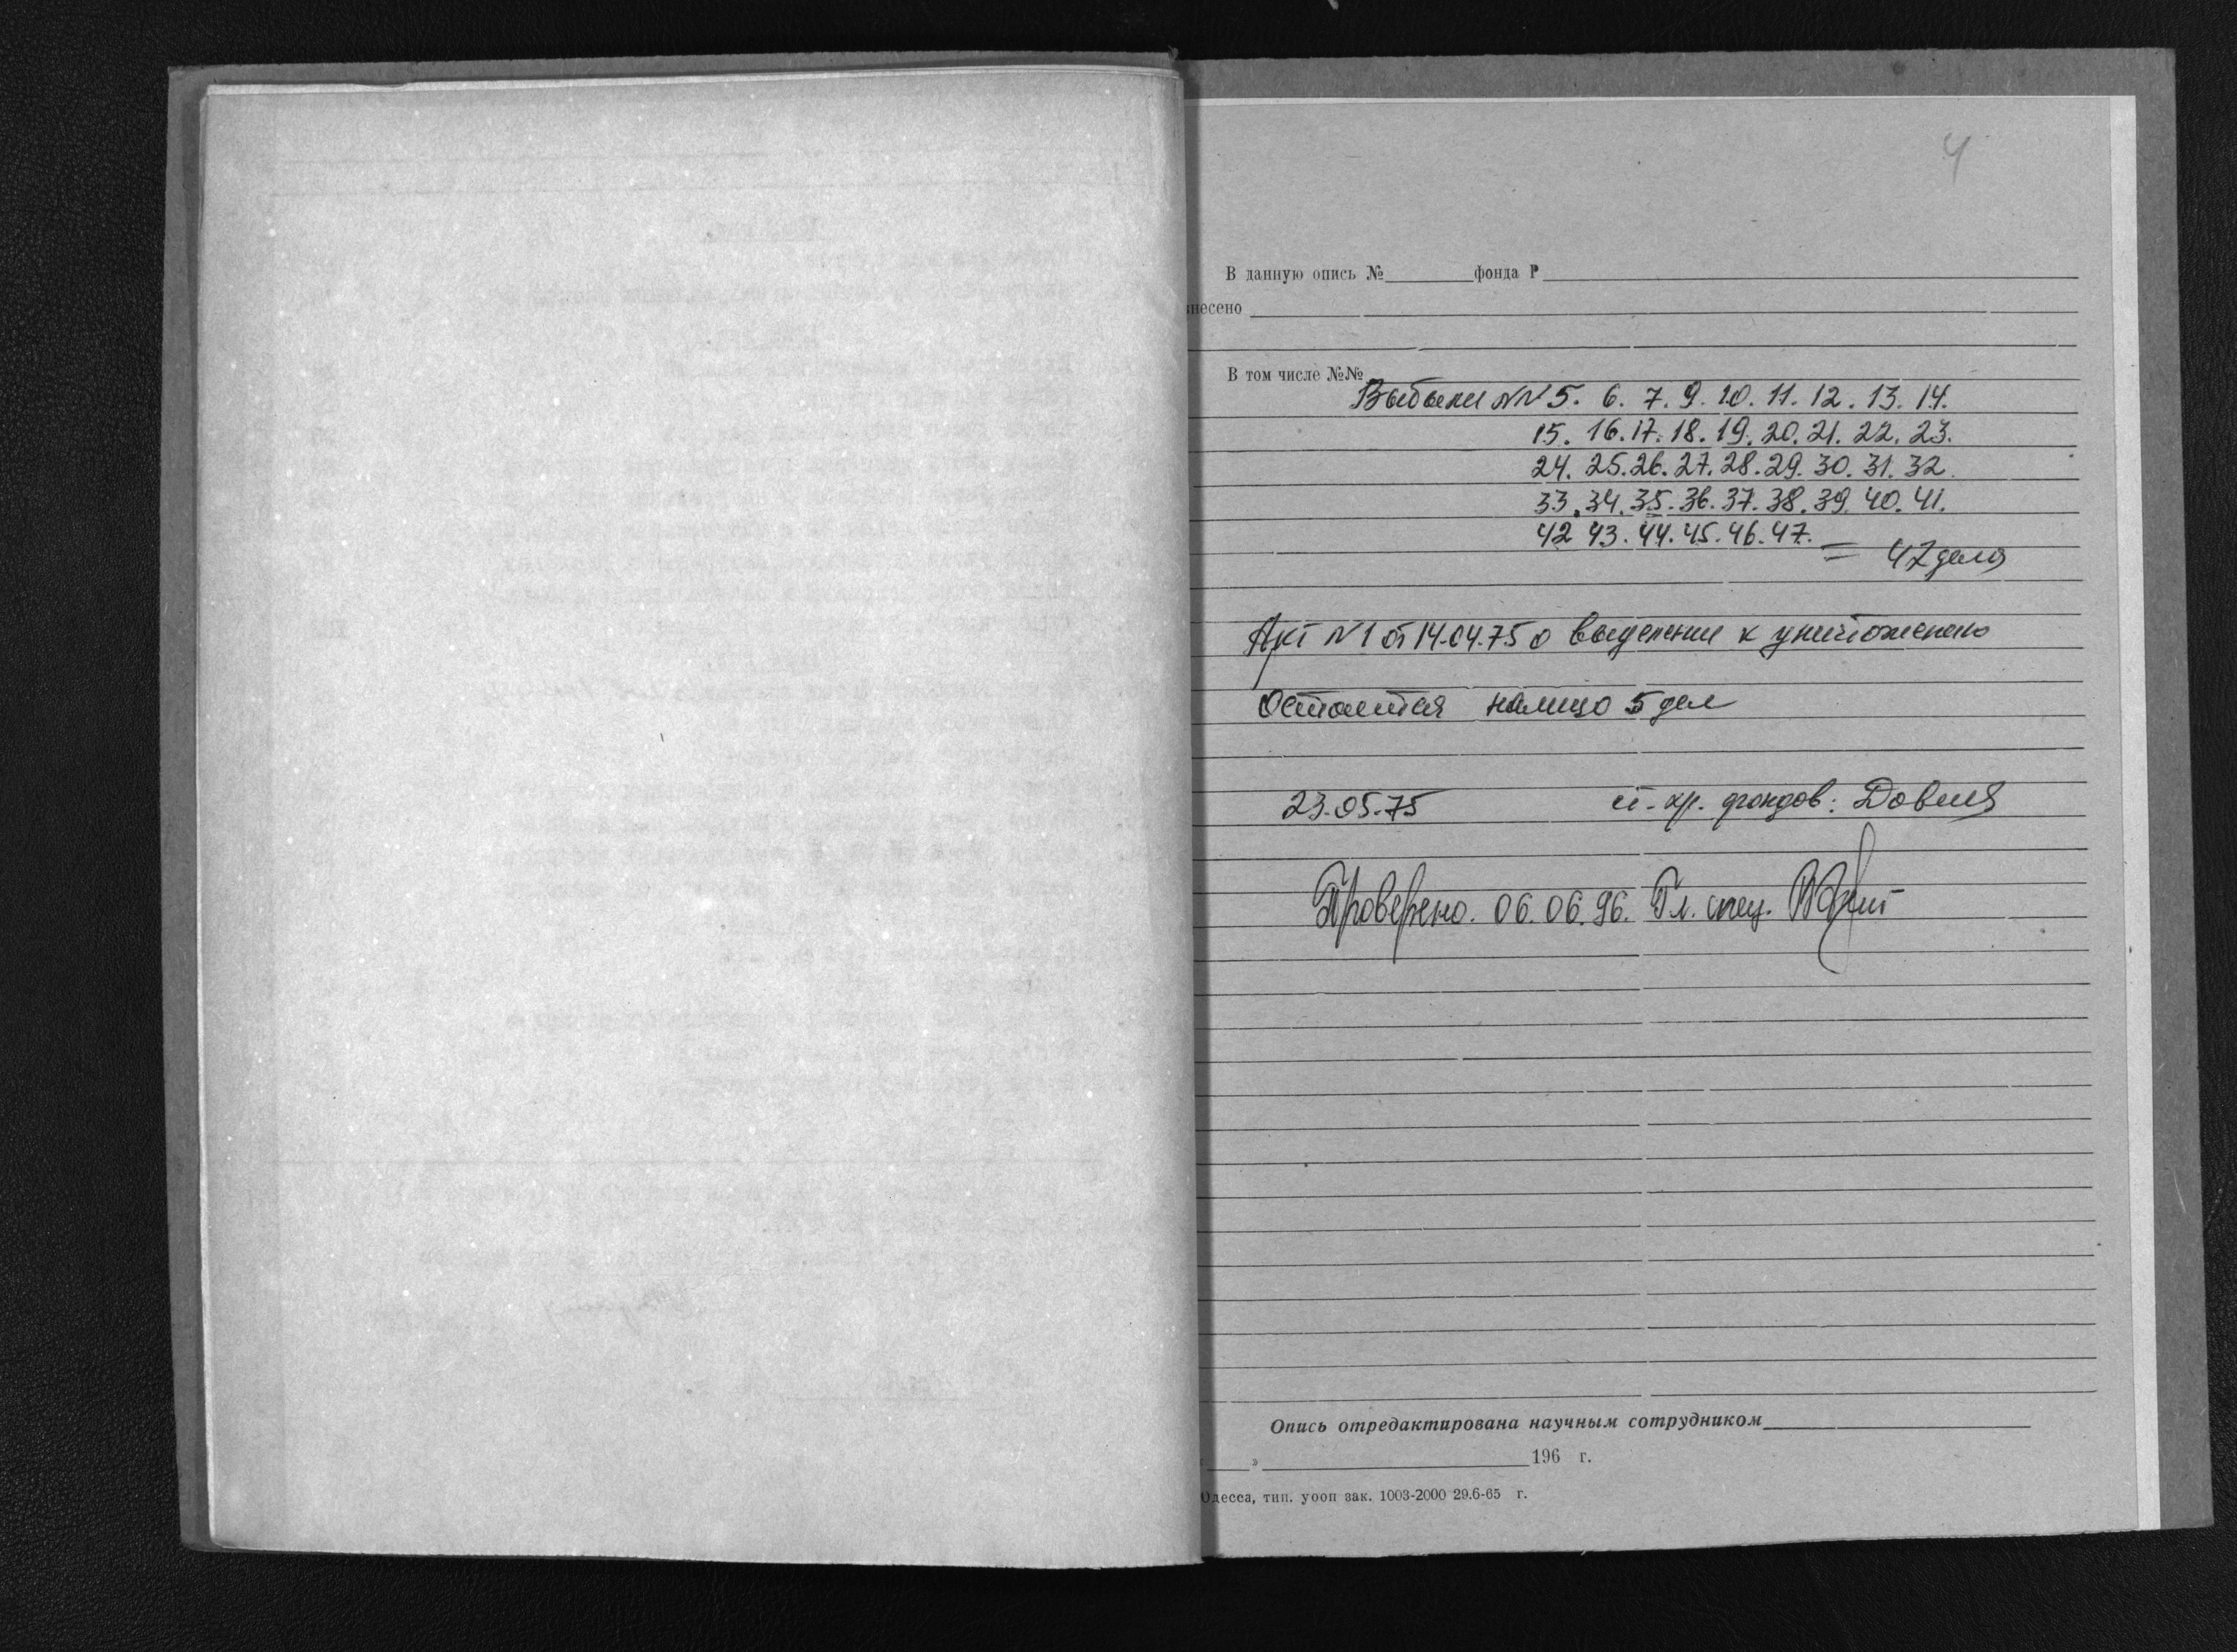 4
В данную опись № фонда Р
несено
В том числе №№
Выбыли №№ 5. 6. 7. 9. 10. 11. 12. 13. 14.
15. 16. 17. 18. 19. 20. 21. 22. 23.
24. 25. 26. 27. 28. 29. 30. 31. 32.
33. 34. 35. 36. 37. 38. 39. 40. 41.
42 43. 44. 45. 46. 47. = 42 дела
Акт №1 от 14.04.75 о выделении к уничтожению
Остаётся налицо 5 дел
23.05.75 ст. хр. фондов:
Проверено. 06.06.96. Гл. спец.
Опись отредактирована научным сотрудником
» 196 г.
Одесса, тип. уооп зак. 1003-2000 29.6-65 г.